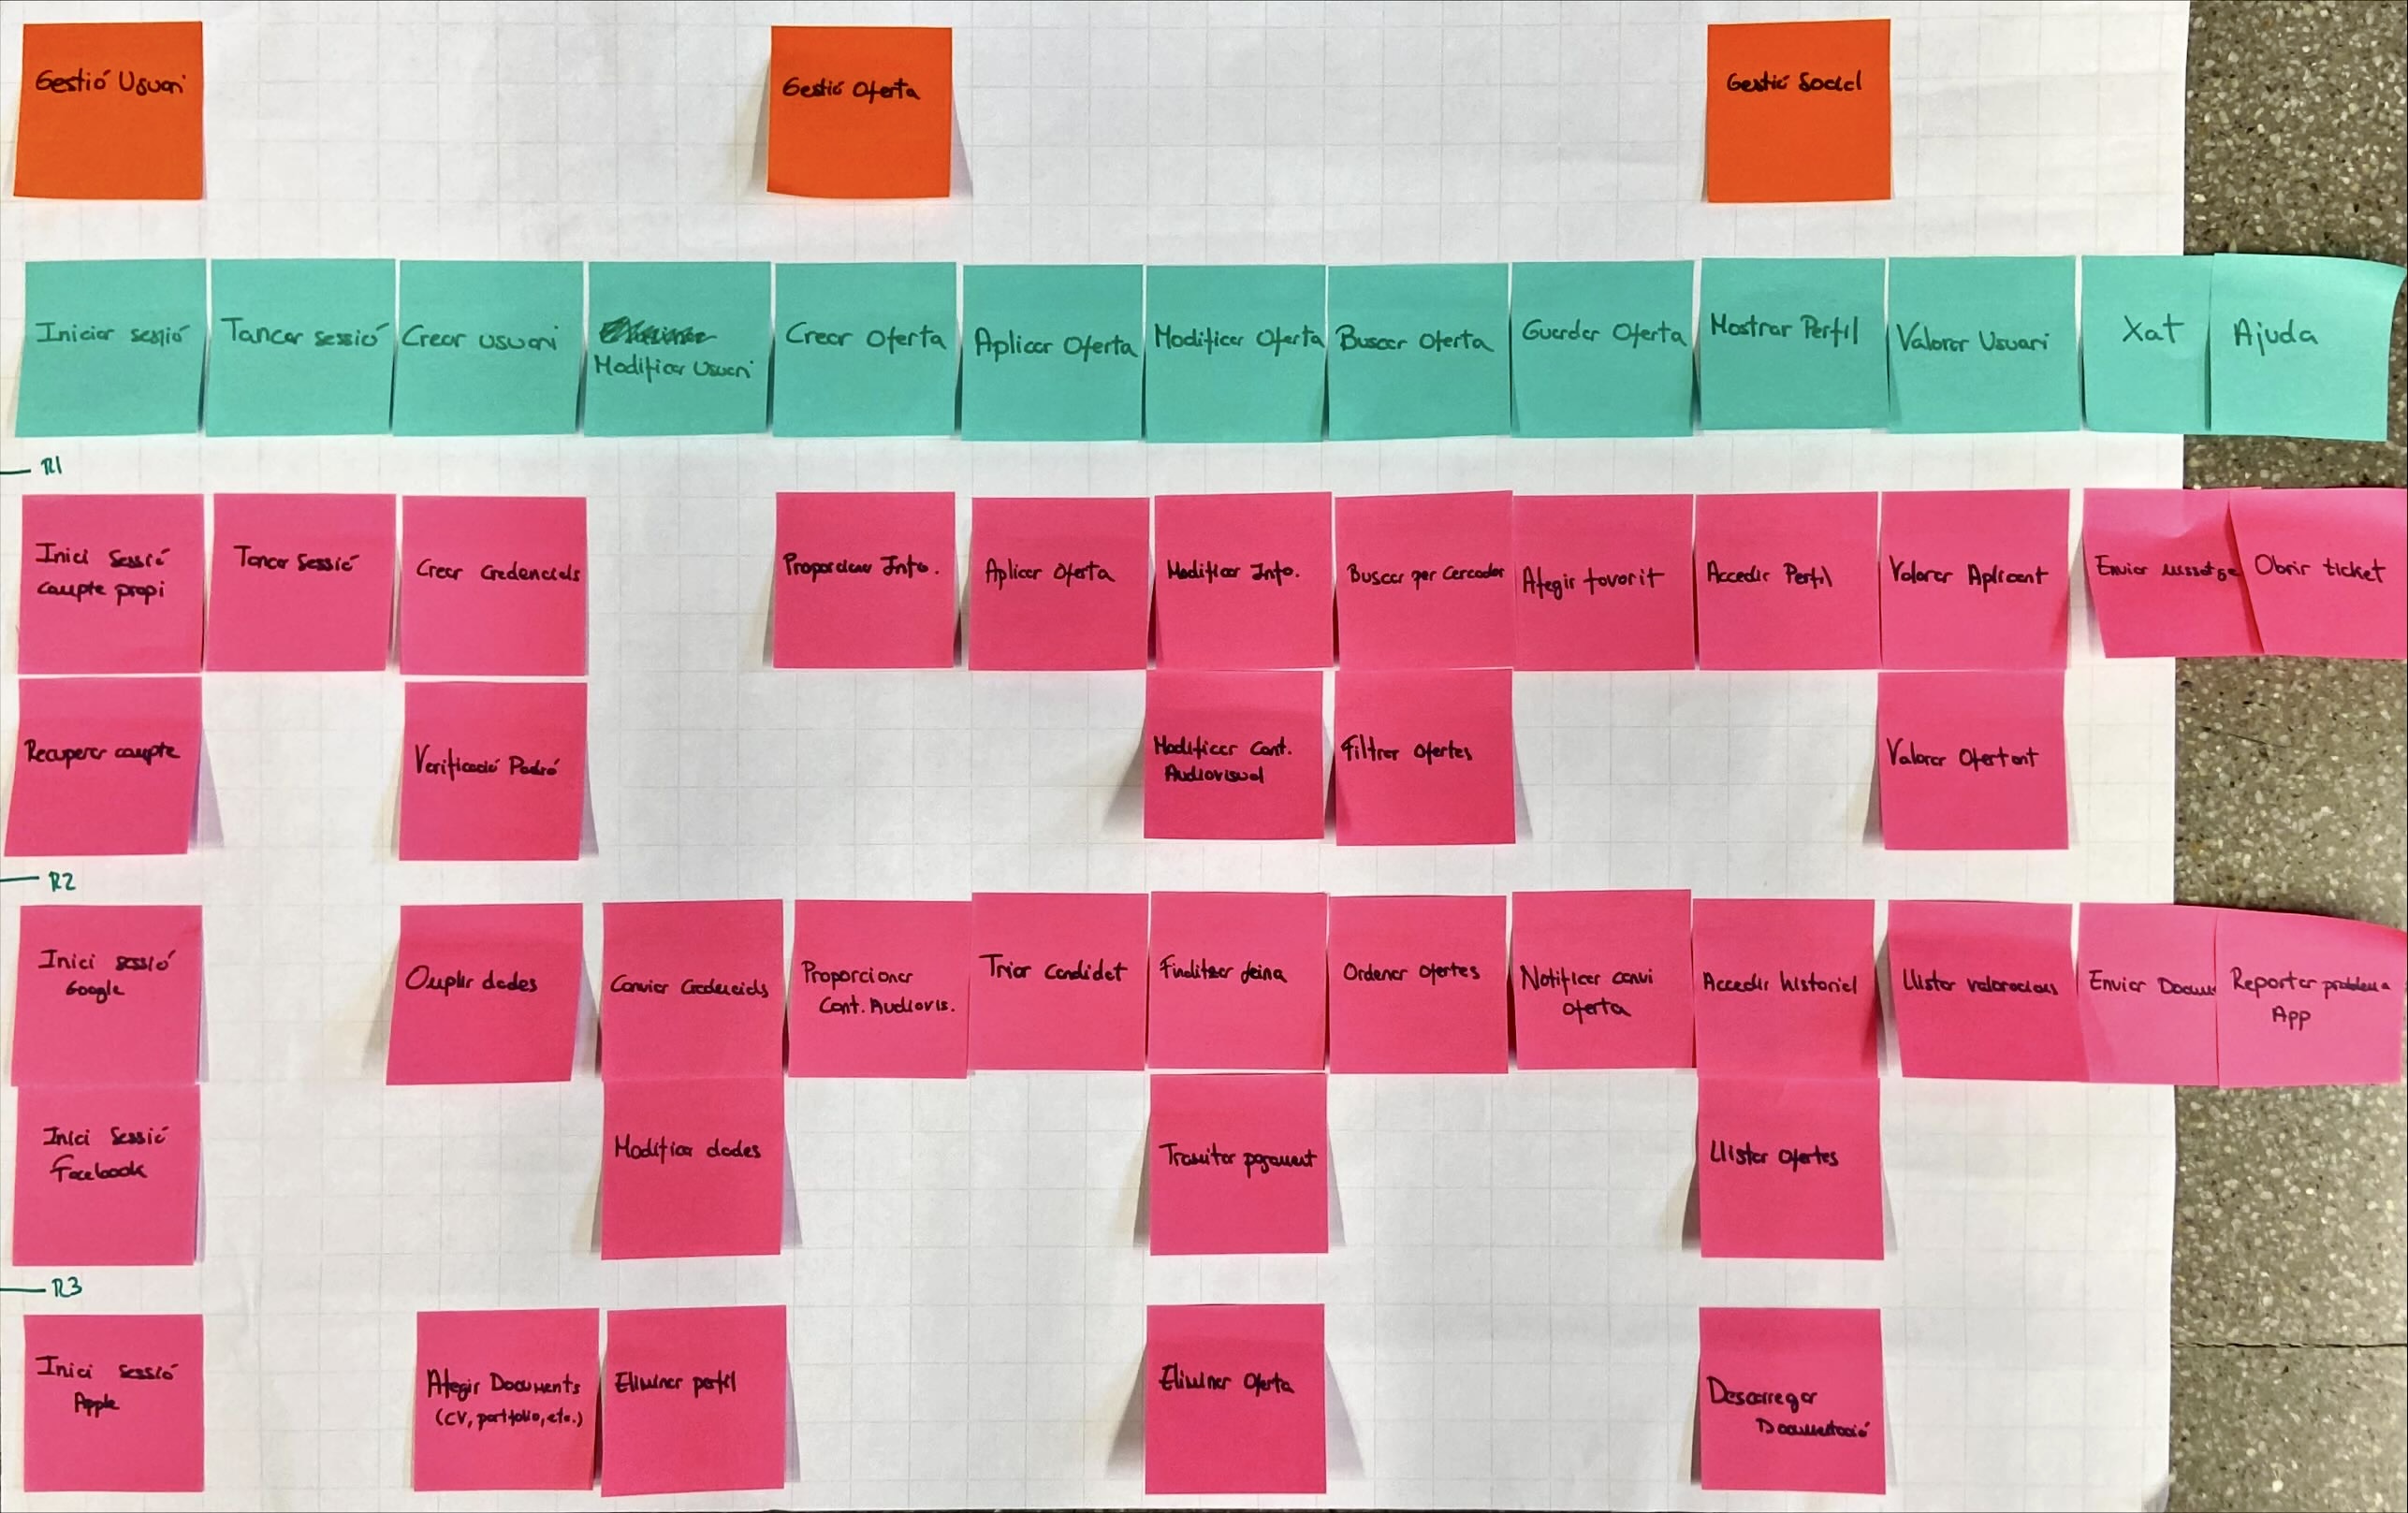 Gestió Usuari
Gestió Oferta
Gestió Social
Iniciar sessió
Tancar sessió
Crear usuari
Modificar Usuari
Crear Oferta
Aplicar Oferta
Modificar Oferta
Buscar Oferta
Guardar Oferta
Mostrar Perfil
Valorar Usuari
Xat
Ajuda
R1
Inici Sessió
compte propi
Tancar Sessió
Crear Credencials
Proporcionar Info.
Aplicar Oferta
Modificar Info.
Buscar per Cercador
Afegir favorit
Accedir Perfil
Valorar Aplicant
Enviar missatge
Obrir ticket
Recuperar compte
Verificació Padró
Modificar Cont.
Audiovisual
Filtrar Ofertes
Valorar Ofertant
R2
Inici sessió
Google
Omplir dades
Canviar Credencials
Proporcionar
Cont. Audiovis.
Triar Candidat
Finalitzar feina
Ordenar ofertes
Notificar canvi
oferta
Accedir historial
Llistar valoracions
Enviar Docum
Reportar problema
App
Inici Sessió
Facebook
Modificar dades
Tramitar pagament
Llistar ofertes
R3
Inici sessió
Apple
Afegir Documents
(CV, portfolio, etc.)
Eliminar perfil
Eliminar Oferta
Descarregar
Documentació